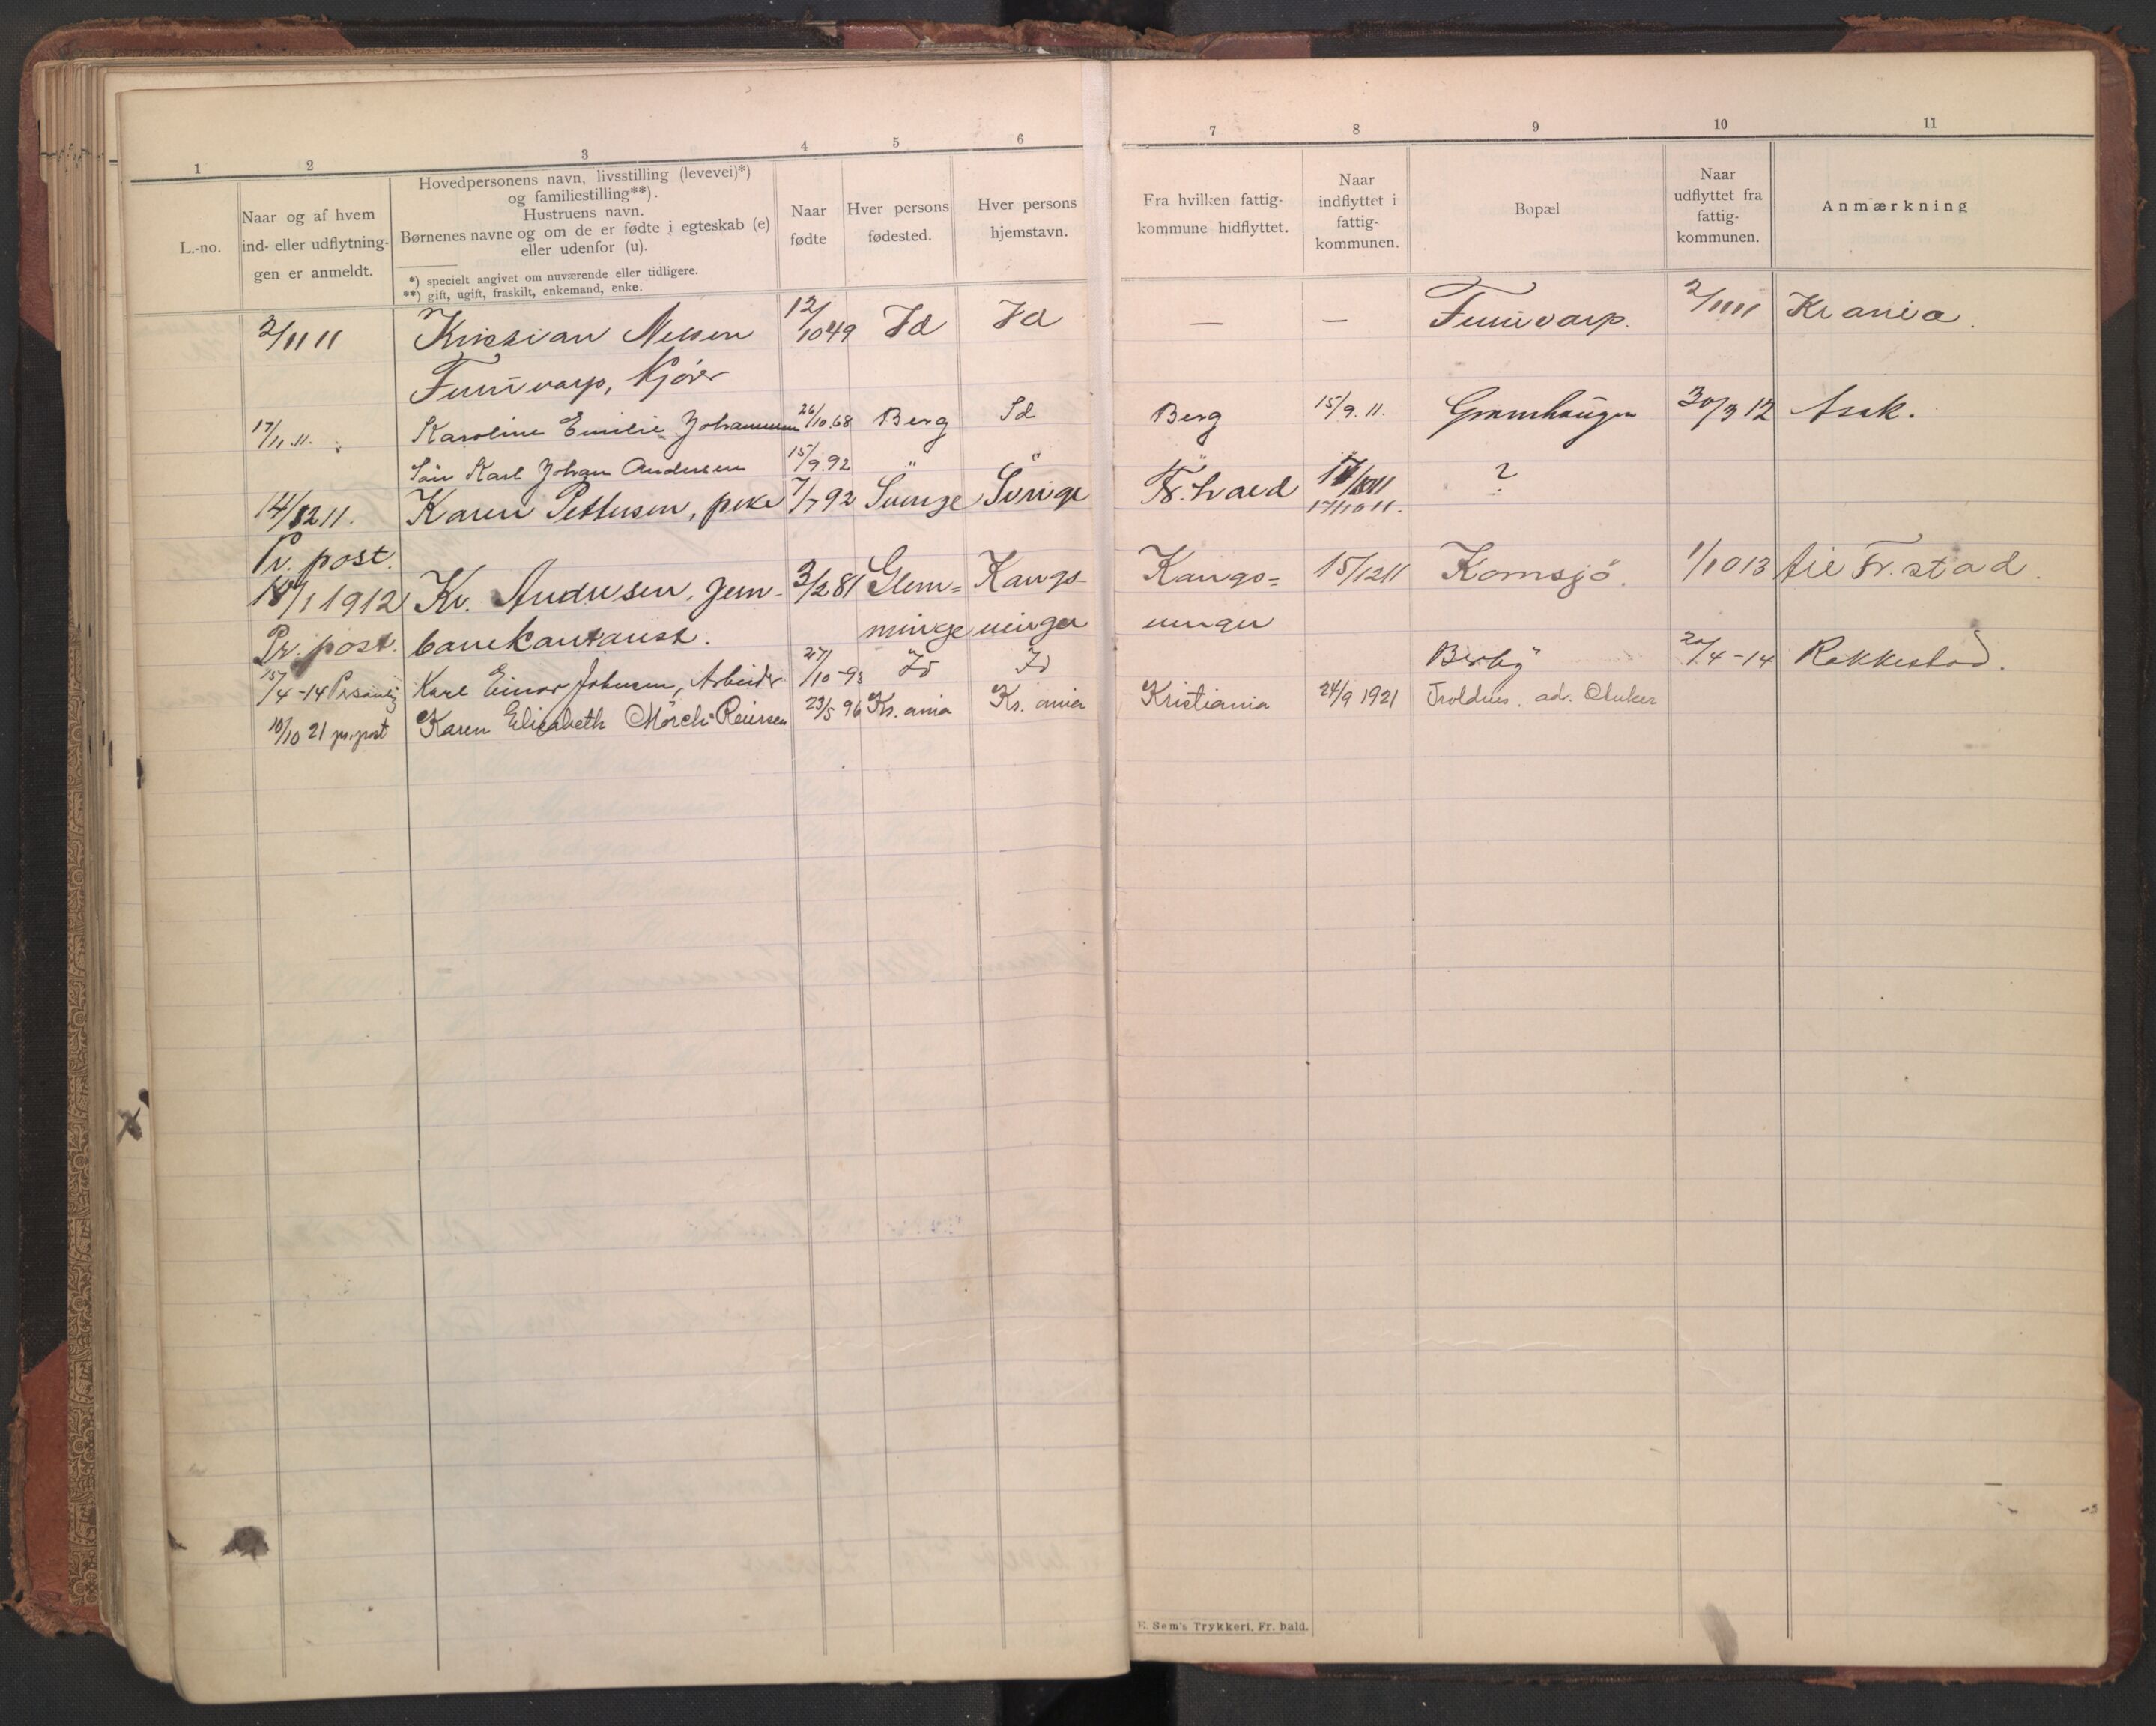 1 2 3 4 5 6 7 8 9 10 11
L.-no.
Naar og af hvem
ind- eller udflytnin-
gen er anmeldt.
Hovedpersonens navn, livsstilling (levevei)*)
og familiestilling**).
Hustruens navn.
Børnenes navne og om de er fødte i egteskab (e)
eller udenfor (u).
*) specielt angivet om nuværende eller tidligere.
**) gift, ugift, fraskilt, enkemand, enke.
Naar
fødte
Hver persons
fødested.
Hver persons
hjemstavn.
Fra hvilken fattig-
kommune hidflyttet.
Naar
indflyttet i
fattig-
kommunen.
Bopæl
Naar
udflyttet fra
fattig-
kommunen.
Anmærkning
2/11 11 Kristian Nelsen 12/10 49 Id Id — — 2/11 11 Kr ania.
17/11.11. Karoline Emilie Johannesen 26/10.68 Berg Id Berg 15/9.11. Grønnhaugen 30/3 12 Asak.
Søn Karl Johan Andersen 15/9.92 " " "
14/12 11. Karen Pettersen, pike 7/7 92 Sverige Sverige Fr.hald ?
17/10 11.
Pr. post.
1/1 1912 Kr. Andersen, jern- 3/2 81 Glem= Kongs- Kongs= 15/12 11 Kornsjø. 1/10 13 til Fr.stad.
Pr. post. banekontorist. minge vinger vinger
15/4-14 Personlig Karl Einar Johnsen, Arbeider 27/10-93 Id Id Berby 20/4-14 Rakkestad.
10/10 21 pr. post Karen Elisabeth Mørch-Reiersen 23/5 96 Kr. ania Kr. ania Kristiania 24/9 1921
E. Sem's Trykkeri, Fr. hald.